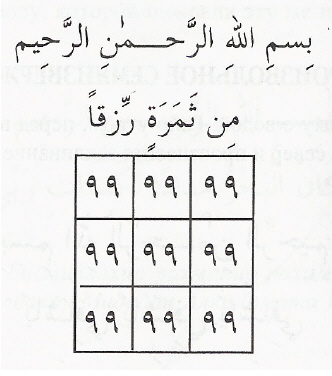 بِسمِ اللهِ الرَّحـــمٰنِ الرَّحِيمِ
مِن ثَمَرَةٍ رِّزقاً
٩٩ ٩٩ ٩٩
٩٩ ٩٩ ٩٩
٩٩ ٩٩ ٩٩